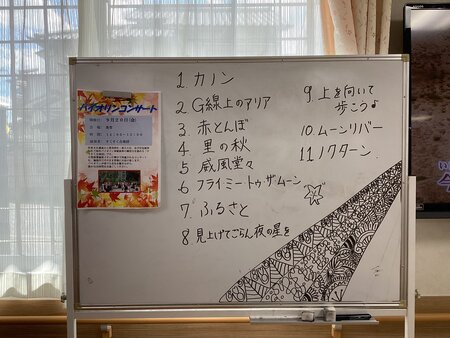 バイオリンコンサート
1. カノン
2 G線上のアリア
3. 赤とんぼ
4. 里の秋
5 威風堂々
6 フライミートゥザムーン
7. ふるさと
8 見上げてごらん夜の星を
9. 上を向いて
歩こう♪
10. ムーンリバー
11. ノクターン